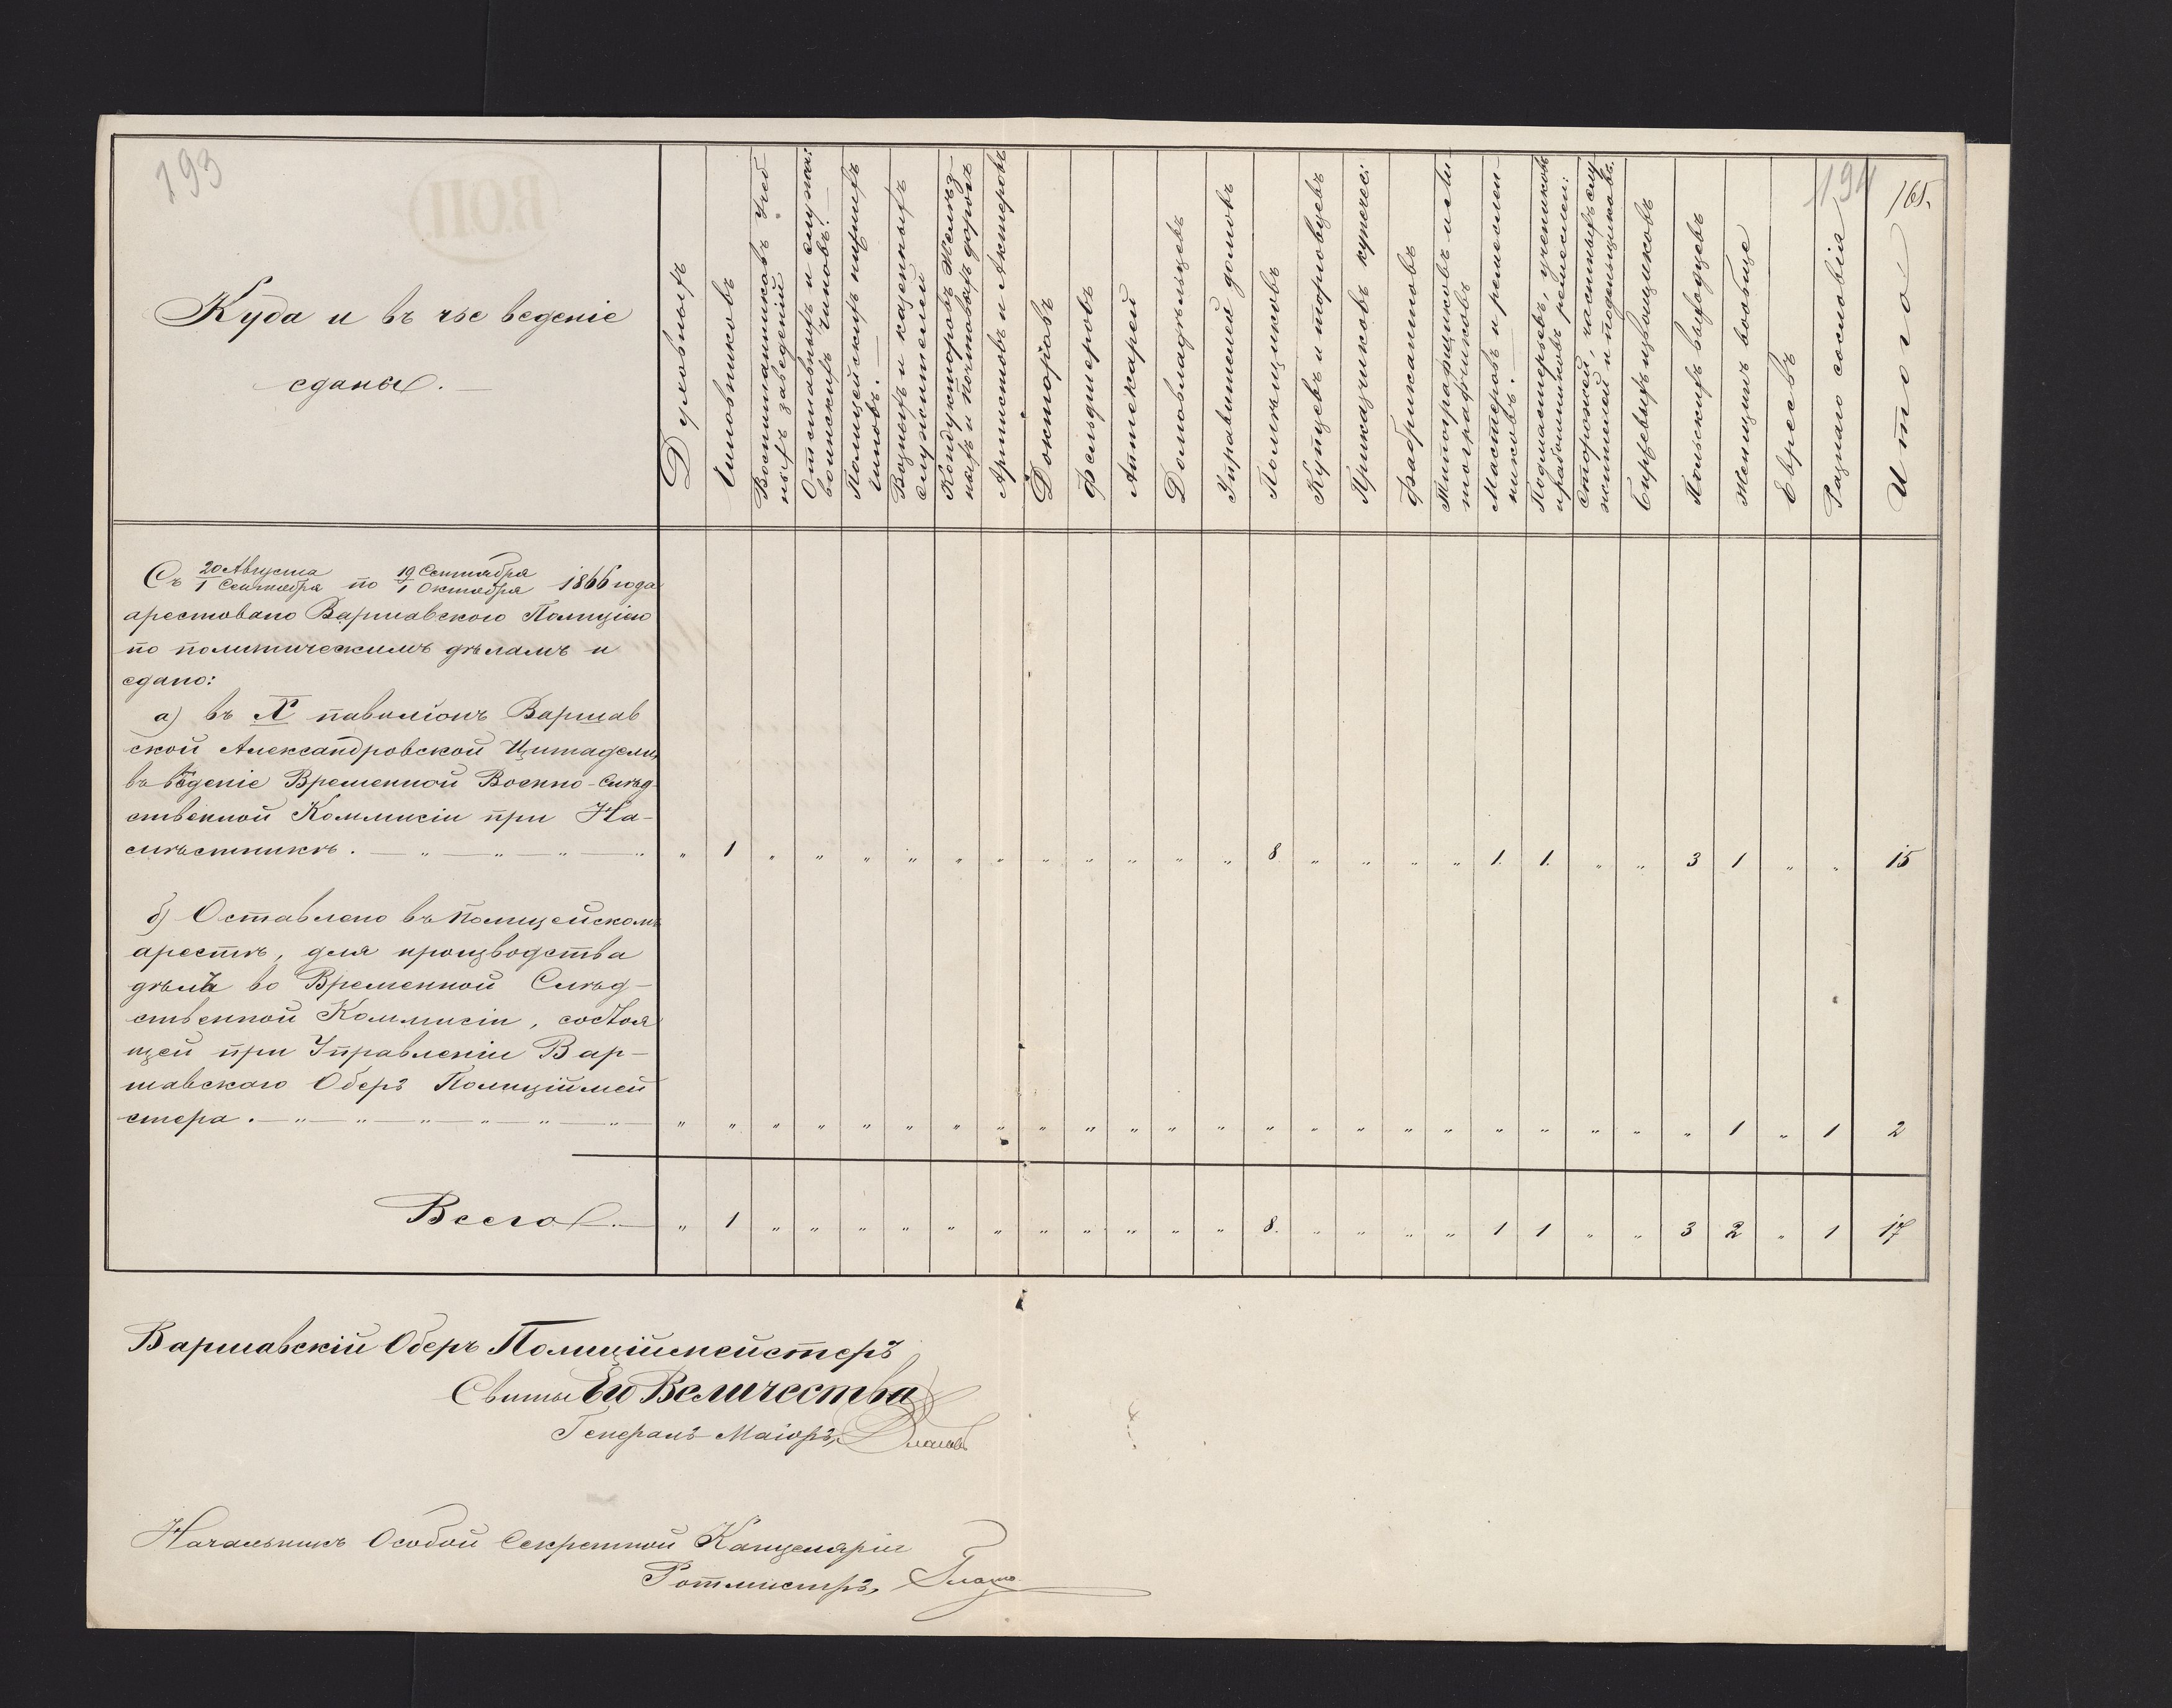 193
ВОП
194
165.
Куда и въ чье веденіе
сданы.
Духовныхъ
Чиновниковъ
Воспитанниковъ Учеб
ныхъ заведеній
Отставныхъ и служа:
воинскихъ чиновъ.
Полицейскихъ низшихъ
чиновъ.
Возныхъ и казенныхъ
служителей
Кондукторовъ желѣз-
ныхъ и почтовыхъ дорогъ
Артистовъ и Актеровъ
Докторовъ
Фельдшеровъ
Аптекарей
Домовладѣльцевъ
Управителей домовъ
Помѣщиковъ
Купцевъ и торговцевъ
Прикащиковъ купечес:
Фабрикантовъ
Типографщиковъ и ли
тографщиковъ
Мастеровъ и ремеслен
никовъ.
Подмастерьевъ, учениковъ
и работниковъ ремеслен:
Сторожей, частныхъ слу
жителей и поденьщиковъ.
Биржевыхъ извощиковъ
Польскихъ выходцевъ
Женщинъ вообще
Евреевъ
Разнаго сословія
Итого
Съ 20 Августа / 1 Сентября по 19 Сентября / 1 Октября 1866 года
арестовано Варшавскою Полиціею
по политическимъ дѣламъ и
сдано:
а) въ X павиліонъ Варшав
ской Александровской Цитадели,
въ вѣденіе Временной Военно-Слѣд
ственной Коммисіи при На-
мѣстникѣ. — " — " — " — " " 1 " " " " " " " " " " " 8. " " " " 1. 1. " " 3 1 " " 15
б) Оставлено въ Полицейскомъ
арестѣ, для производства
дѣлъ во Временной Слѣд-
ственной Коммисіи, состоя
щей при Управленіи Вар-
шавскаго Оберъ Полиціймей
стера. — " — " — " — " — " — " — " " " " " " " " " " " " " " " " " " " " " " " 1 " 1 2
Всего. " 1 " " " " " " " " " " " 8. " " " " 1 1 " " 3 2 " 1 17
Варшавскій Оберъ Полиціймейстеръ
Свиты Его Величества
Генералъ Маіоръ,
Начальникъ Особой Секретной Канцеляріи
Ротмистръ,